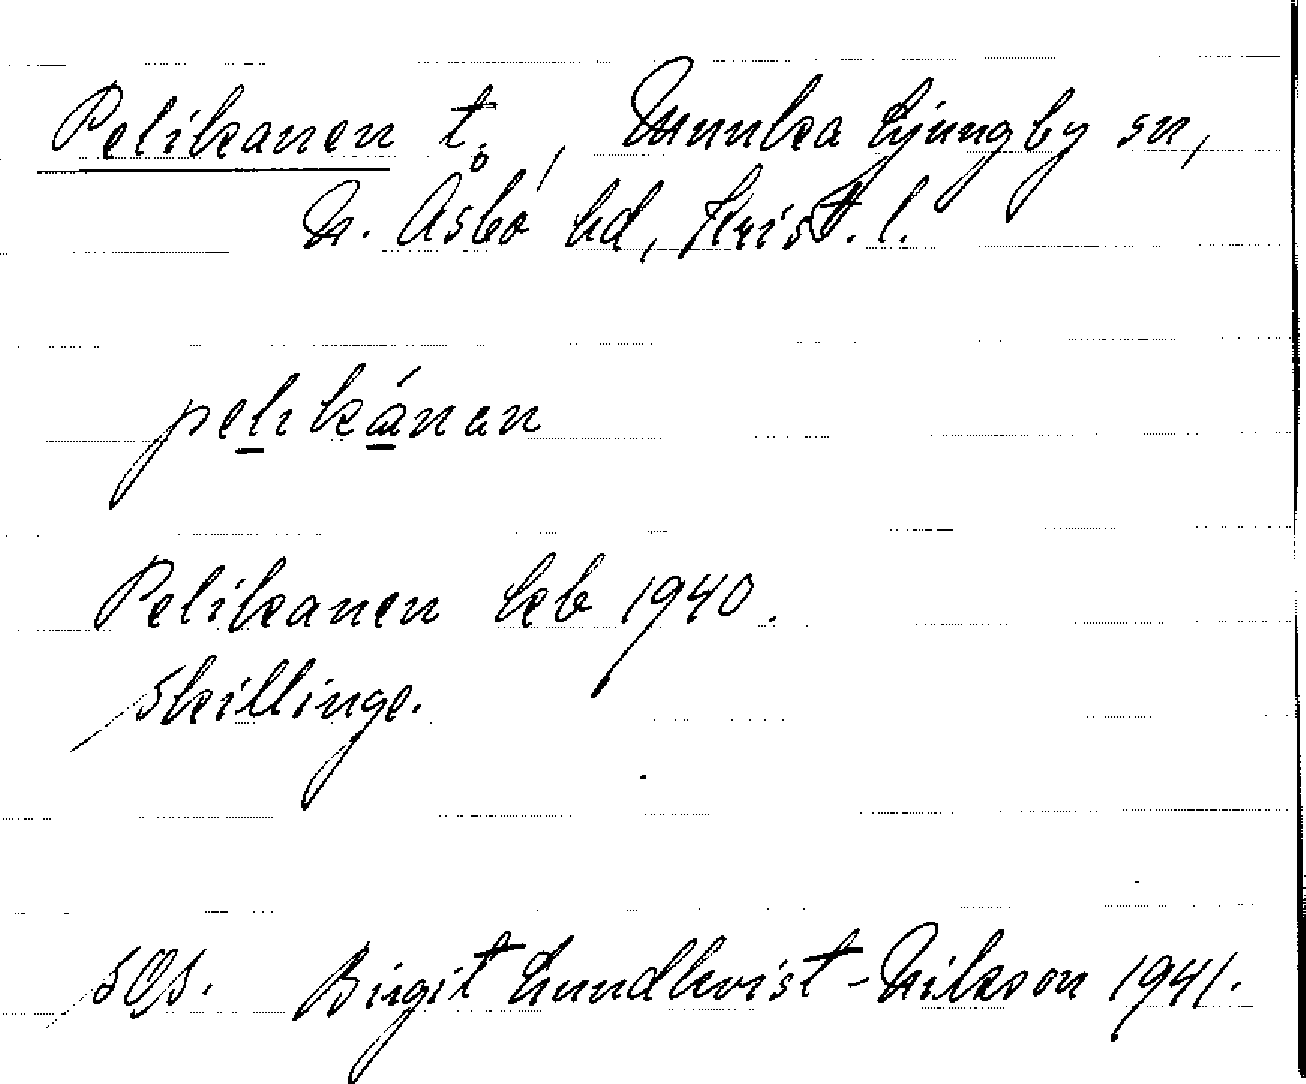 Pelikanen t., Munka Ljungby sn,
N. Åsbo hd, Krist. l.
pelikánan
Pelikanen hkb 1940.
Skillinge.
SOS. Birgit Lundkvist-Nilsson 1941.